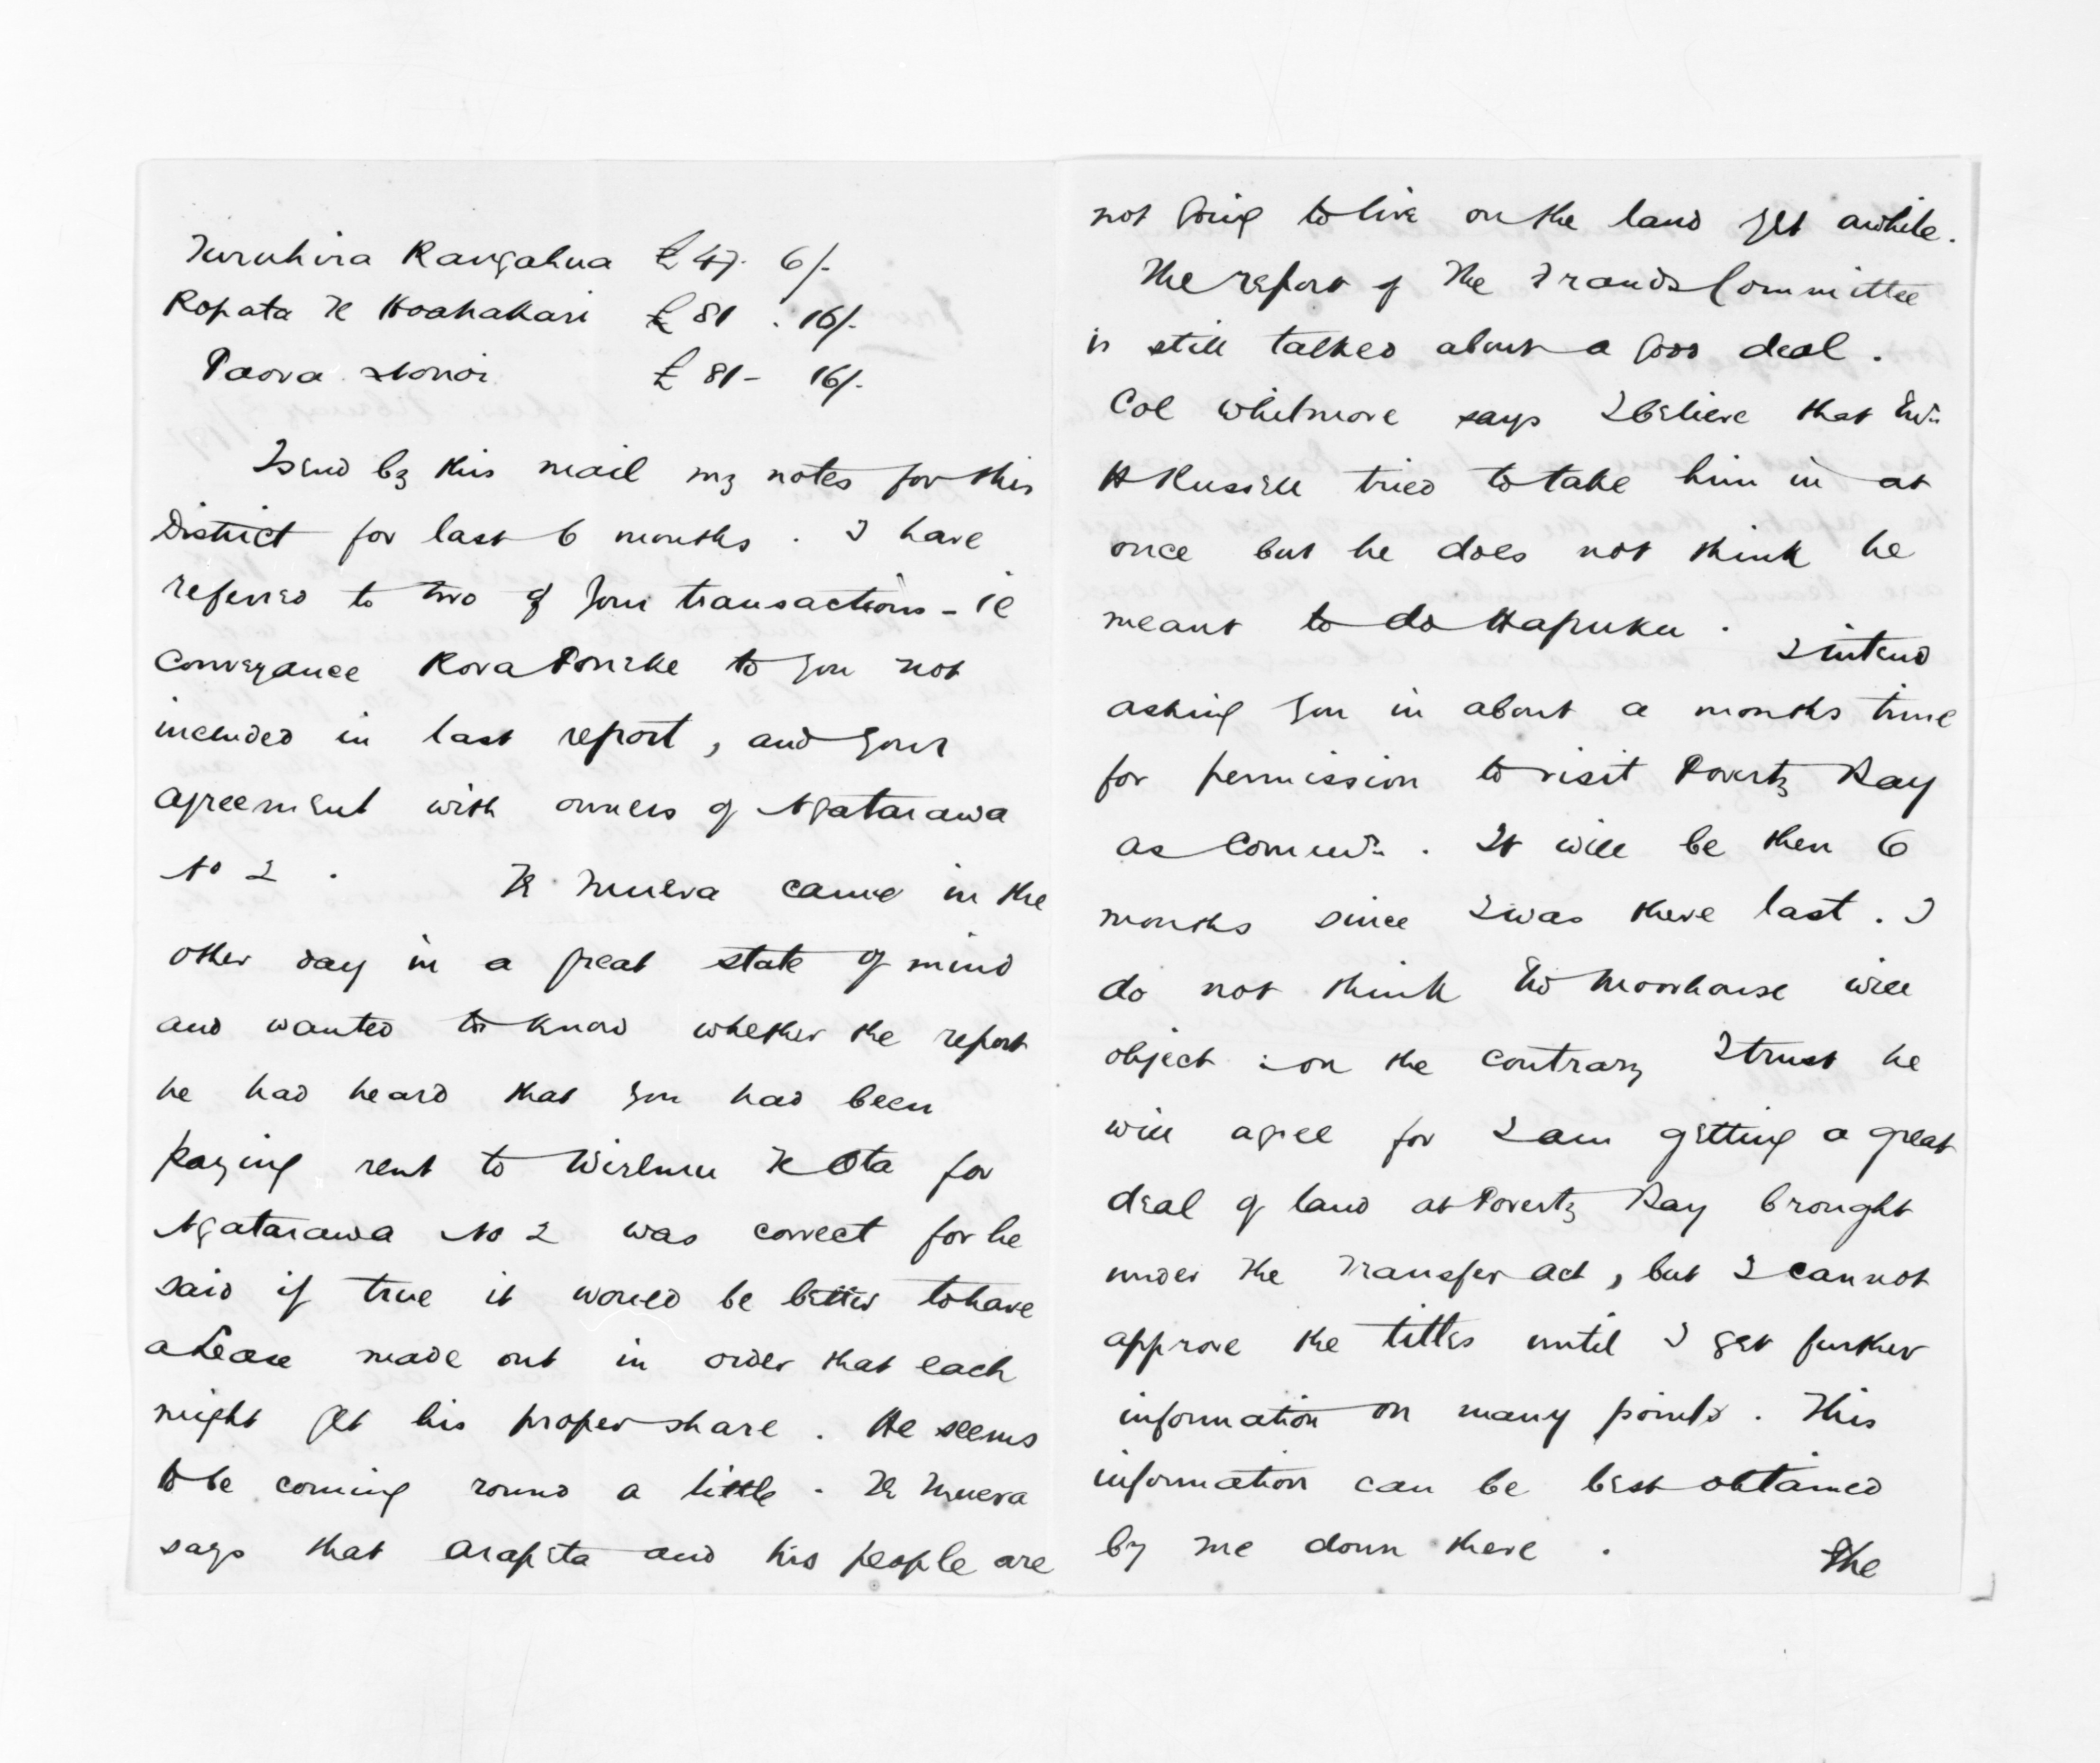 Turuhira Rangahua £47. 6/-
Ropata Te Hoahakari £81. 16/-
Paora Nonoi £81 - 16/-
I send by this mail my notes for this
District for last 6 months. I have
referred to two of your transactions - ie
conveyance Rora Poneke to you not
included in last report, and your
agreement with owners of Ngatarawa
No 2. Te Muera came in the
other day in a great state of mind
and wanted to know whether the report
he had heard that you had been
paying rent to Wiremu Te Ota for
Ngatarawa No 2 was correct for he
said if true it would be better to have
a Lease made out in order that each
might get his proper share. He seems
to be coming round a little. Te Muera
says that Arapeta and his people are
not going to live on the land yet awhile.
The report of the Frauds Committee
is still talked about a good deal.
Col Whitmore says I believe that
H Russell tried to take him in at
once but he does not think he
meant to do Hapuku. I intend
asking you in about a months time
for permission to visit Poverty Bay
as Commr. It will be then 6
months since I was there last. I
do not think Moorhouse will
object :on the contrary I trust he
will agree for I am getting a great
deal of land at Poverty Bay brought
under the Transfer Act, but I cannot
approve the titles until I get further
information on many points. This
information can be best obtained
by me down there. The